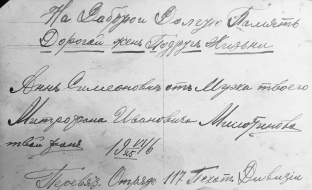 На Добрую Долгую Память
Дорогой жене Подруге Жизни
Анне Симеонович от Мужа твоего
Митрофана Ивановича
твой Фаня 19 VI/25 16
Перевяз. Отряд 117 Пехот. Дивизии